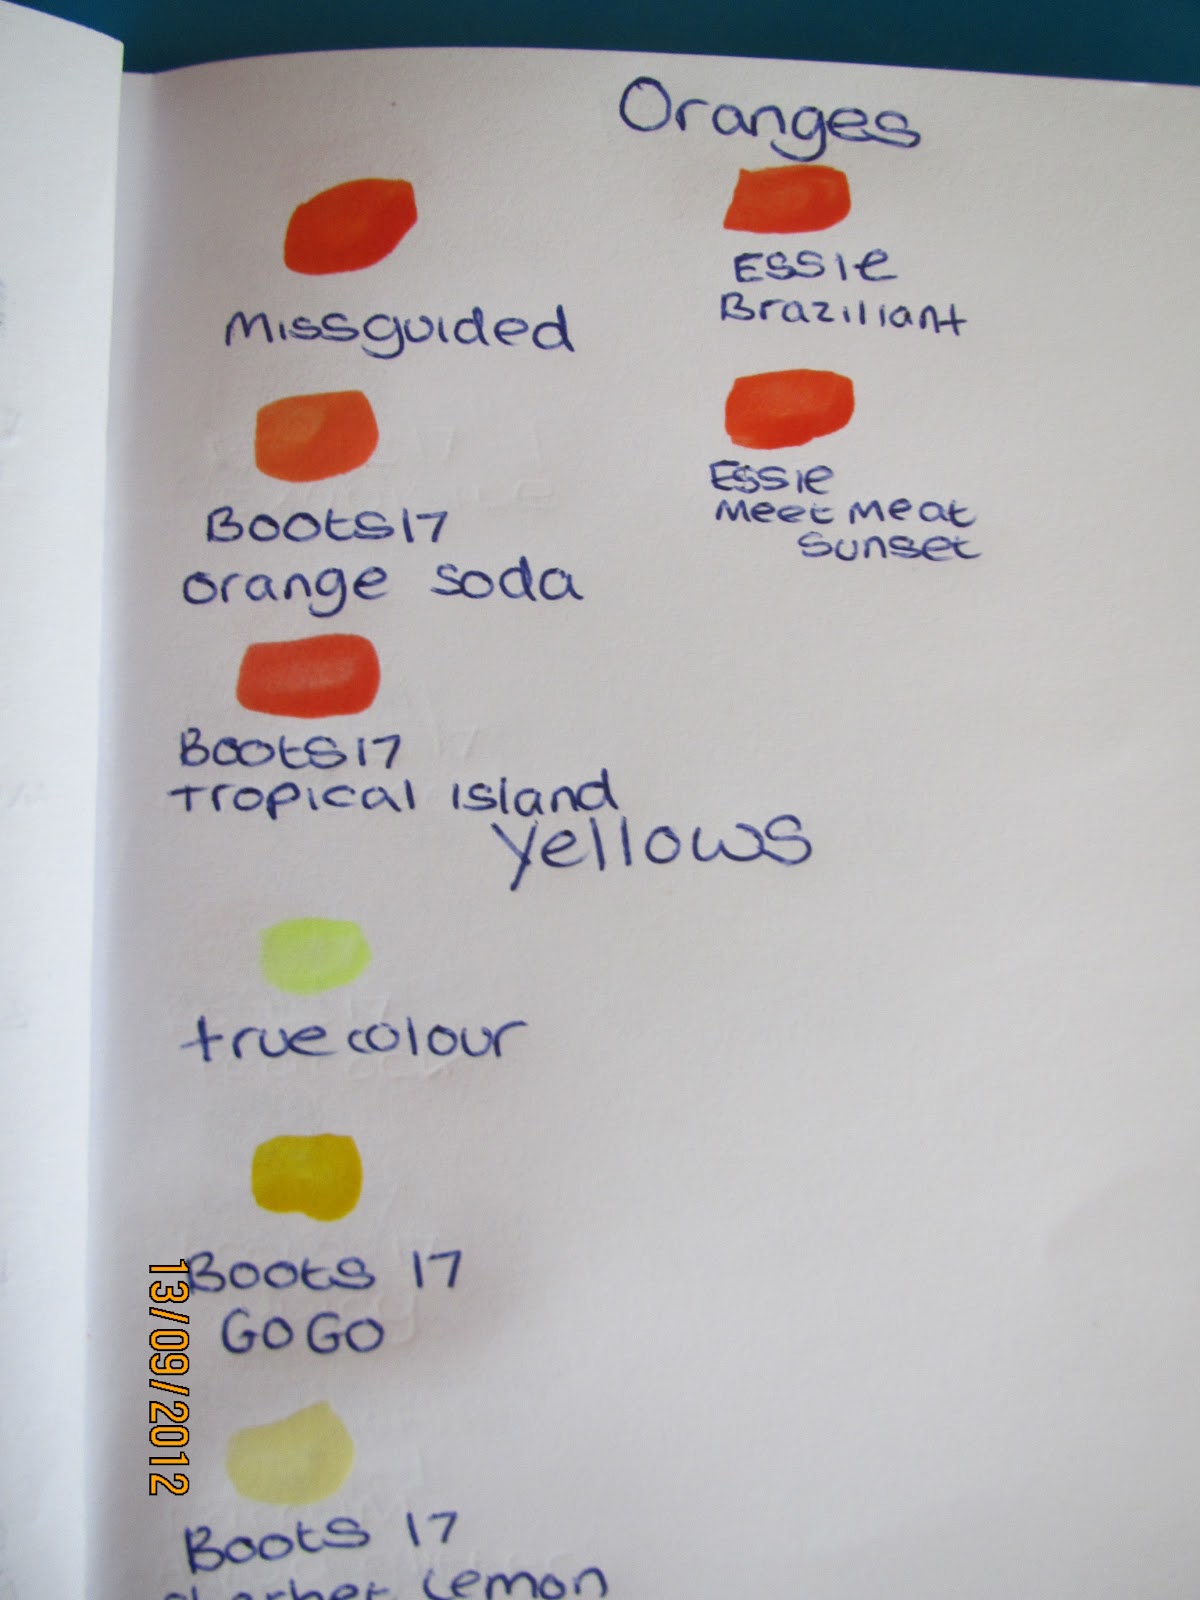 Oranges
Missguided
Essie
Braziliant
Boots 17
orange soda
Essie
Meet Meat
Sunset
Boots 17
Tropical Island
Yellows
true colour
Boots 17
GOGO
13/09/2012
Boots 17
Sherbet Lemon